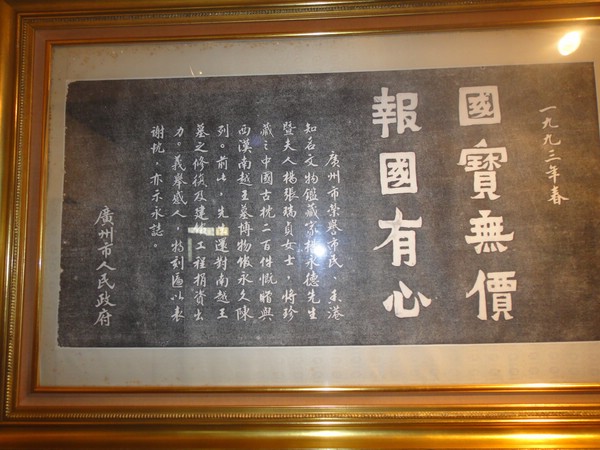 一九九三年春
國寶無價
報國有心
廣州市榮譽市民 香港
知名文物鑑藏家楊永德先生
暨夫人楊張瑞貞女士，將珍
藏之中國古枕二百件慨贈與
西漢南越王墓博物館永久陳
列。前此，先後還對南越王
墓之修復及建館工程捐資出
力。義舉感人，特刻匾以表
謝忱，亦示永誌。
廣州市人民政府